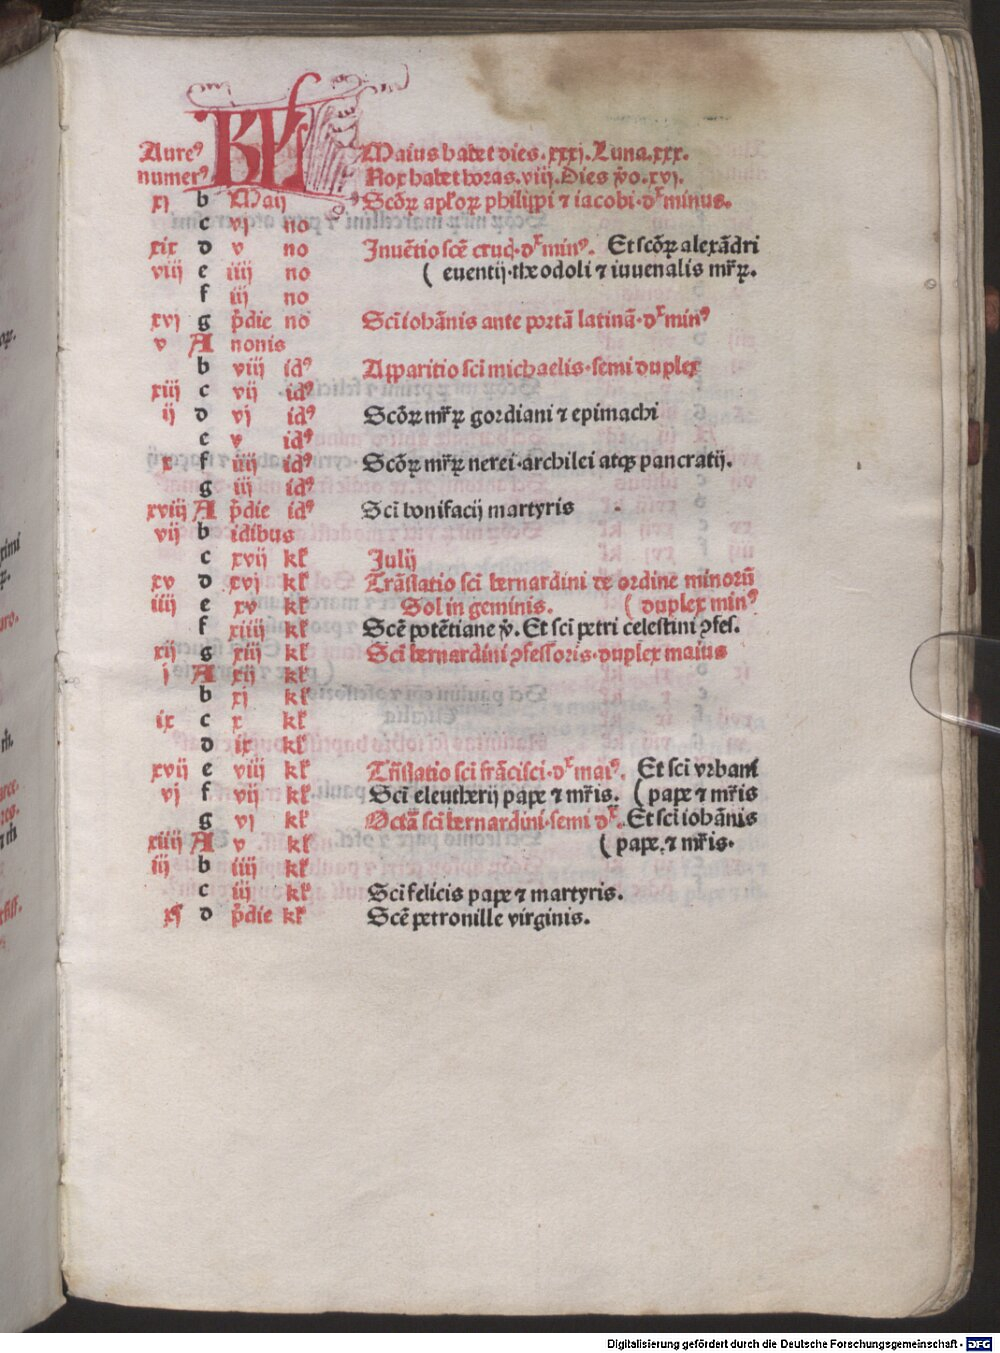 Aureꝰ KL Maius habet dies.xxxj.Luna.xxx.
numerꝰ Nox habet horas.viij.Dies v̄o.xvj.
xj b Maij Scōꝝ apłoꝝ philippi ⁊ iacobi·dʳ minus.
c vj no
xix d v no Inuētio scē cruc·dʳ minꝰ. Et scōꝝ alexādri
viij e iiij no ( euentij·theodoli ⁊ iuuenalis mr̄ꝝ.
f iij no
xvj g p̄die no Sci iohānis ante portā latinā·dʳ minꝰ
v A nonis
b viij idꝰ Apparitio sci michaelis·semi duplex
xiij c vij idꝰ
ij d vj idꝰ Scōꝝ mr̄ꝝ gordiani ⁊ epimachi
e v idꝰ
x f iiij idꝰ Scōꝝ mr̄ꝝ nerei·archilei atqꝫ pancratij.
g iij idꝰ
xviij A p̄die idꝰ Sci bonifacij martyris
vij b idibus
c xvij kł Julij
xv d xvj kł Trāslatio sci bernardini de ordine minorū
iiij e xv kł Sol in geminis. ( duplex minꝰ
f xiiij kł Scē potētiane v̄. Et sci petri celestini ꝯfes.
xij g xiij kł Sci bernardini ꝯfessoris·duplex maius
j A xij kł
b xj kł
ix c x kł
d ix kł
xvij e viij kł Trāslatio sci frācisci·dʳ maiꝰ. Et sci vrbani
vj f vij kł Sci eleutherij pape ⁊ mr̄is. ( pape ⁊ mr̄is
g vj kł Octā sci bernardini·semi dʳ. Et sci iohānis
xiiij A v kł ( pape ⁊ mr̄is·
iij b iiij kł
c iij kł Sci felicis pape ⁊ martyris.
xj d p̄die kł Scē petronille virginis.
Digitalisierung gefördert durch die Deutsche Forschungsgemeinschaft - DFG